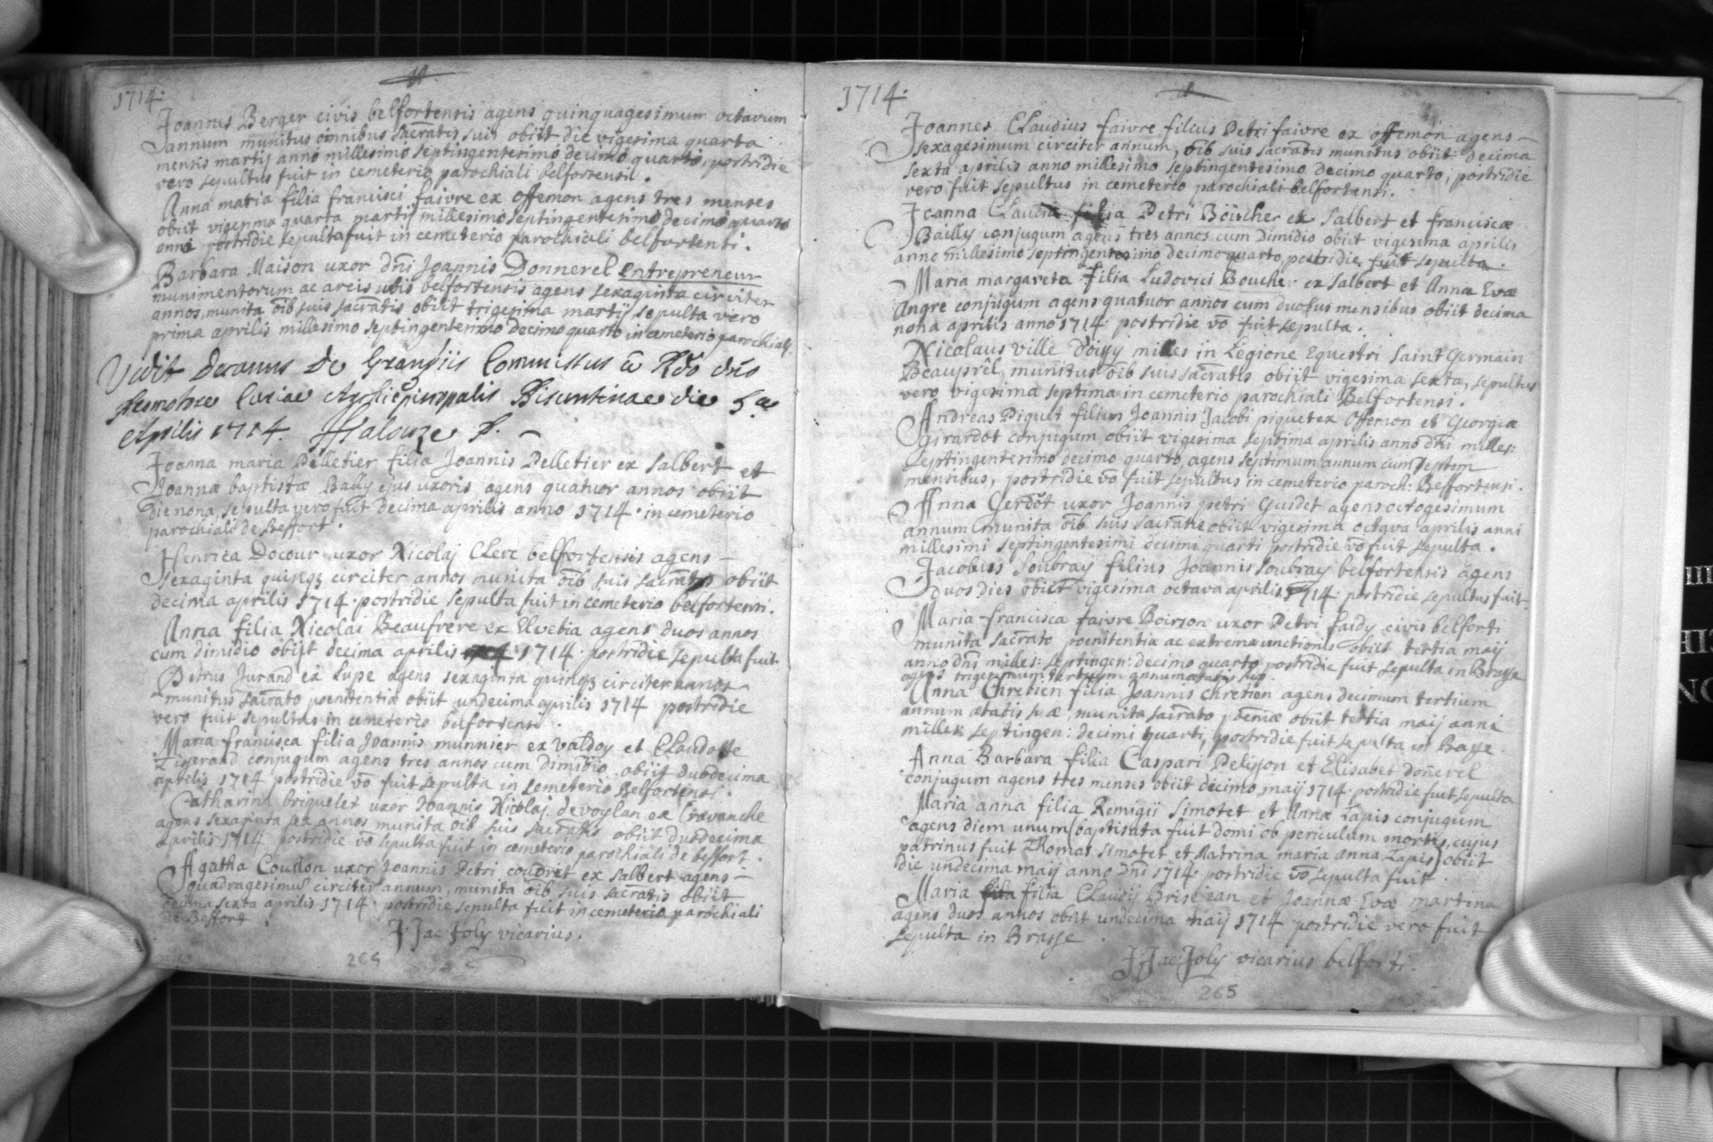 1714.
Joannes Berger civis belfortensis agens quinquagesimum octavum
annum munitus omnibus sacratis suis obiit die vigesima quarta
mensis martij anno millesimo septingentesimo decimo quarto, postridie
vero sepultus fuit in cemeterio parochiali belfortensi.
Anna maria filia francisci faivre ex offemon agens tres menses
obiit vigesima quarta martij millesimo septingentesimo decimo quarto
anno postridie sepulta fuit in cemeterio parochiali belfortensi.
Barbara Maison uxor dni Joannis Donnerel Entrepreneur
munimentorum ac arcis urbis belfortensis agens sexaginta circiter
annos munita oib suis sacratis obiit trigesima martij sepulta vero
prima aprilis millesimo septingentesimo decimo quarto in cemeterio parochiali
Vidit Decanus De Grangiis Commissus a Rdo dno
Curiae Archiepiscopalis Bisuntinae die 5a
Aprilis 1714.
Joanna maria Pelletier filia Joannis Pelletier ex salbert et
Joannæ baptistæ Bailly ejus uxoris agens quatuor annos obiit
die nona, sepulta vero fuit decima aprilis anno 1714. in cemeterio
parochiali de beffort.
Henrica Docour uxor Nicolaj Clerc belfortensis agens
sexaginta quinqz circiter annos munita oib suis sacratis obiit
decima aprilis 1714. postridie sepulta fuit in cemeterio belfortensi.
Anna filia Nicolai Beaufrere ex Elvetia agens duos annos
cum dimidio obijt decima aprilis 1714. postridie sepulta fuit
Petrus Jurand ex Lupe agens sexaginta quinqz circiter annos
munitus sacrato poenitentiæ obiit undecima aprilis 1714 postridie
vero fuit sepultus in cemeterio belfortensi.
Maria francisca filia Joannis munnier ex valdoy et Claudosse
Tisserand conjugum agens tres annos cum dimidio obiit duodecima
aprilis 1714 postridie vo fuit sepulta in cemeterio Belfortensi.
Catharina briquelet uxor Joannis Nicolaj devoylan ex Cravanche
agens sexaginta sex annos munita oib suis sacratis obiit duodecima
aprilis 1714 postridie vo sepulta fuit in cemeterio parochiali de beffort.
Agatha Coudon uxor Joannis Petri coudret ex salbert agens
quadragesimum circiter annum, munita oib suis sacratis obiit
decima sexta aprilis 1714. postridie sepulta fuit in cemeterio parochiali
de Beffort
J. Jac Joly vicarius.
264
1714.
Joannes Claudius faivre filius Petri faivre ex offemon agens
sexagesimum circiter annum, oib suis sacratis munitus obiit decima
sexta aprilis anno millesimo septingentesimo decimo quarto, postridie
vero fuit sepultus in cemeterio parochiali belfortensi.
Joanna Claudia filia Petri Boucher ex salbert et franciscæ
Bailly conjugum agens tres annos cum dimidio obiit vigesima aprilis
anno millesimo septingentesimo decimo quarto postridie fuit sepulta.
Maria margareta filia Ludovici Bouche ex salbert et Annæ Evæ
Angre conjugum agens quatuor annos cum duobus mensibus obiit decima
nona aprilis anno 1714. postridie vo fuit sepulta.
Nicolaus ville d'oissy miles in Legione Equestri Saint Germain
Beaupré, munitus oib suis sacratis obiit vigesima sexta, sepultus
vero vigesima septima in cemeterio parochiali Belfortensi.
Andreas Piquet filius Joannis Jacobi piquet ex Offemon et Georgiæ
Girardot conjugum obiit vigesima septima aprilis anno dni milles:
septingentesimo decimo quarto, agens septimum annum cum septem
mensibus, postridie vo fuit sepultus in cemeterio paroch: Belfortensi.
Anna Gerdot uxor Joannis petri Guidet agens octogesimum
annum munita oib suis sacratis obiit vigesima octava aprilis anni
millesimi septingentesimi decimi quarti postridie vo fuit sepulta.
Jacobus Souvray filius Joannis souvray belfortensis agens
duos dies obiit vigesima octava aprilis 1714. postridie sepultus fuit.
Maria francisca faivre Boirson uxor Petri faidy civis belforti
munita sacrato poenitentiæ ac extremæunctionis obiit tertia maij
anno dni milles: septingen: decimo quarto postridie fuit sepulta in Brasse
agens trigesimum tertium annum ætatis suæ.
Anna Chretien filia Joannis chretien agens decimum tertium
annum ætatis suæ, munita sacrato pœniæ obiit tertia maij anni
milles: septingen: decimi quarti, postridie fuit sepulta in Brasse.
Anna Barbara filia Caspari Pelisson et Elisabet donnerel
conjugum agens tres menses obiit decimo maij 1714. postridie fuit sepulta
Maria anna filia Remigii Simotet et Annæ Lapis conjugum
agens diem unum (baptisata fuit domi ob periculum mortis, cujus
patrinus fuit Thomas simotet et Matrina maria anna Lapis) obiit
die undecima maij anno dni 1714. postridie vo sepulta fuit.
Maria filia Claudij Brisezan et Joannæ Evæ martina
agens duos annos obiit undecima maij 1714 postridie vero fuit
sepulta in Brasse.
J. Jac. Joly vicarius belforti.
265